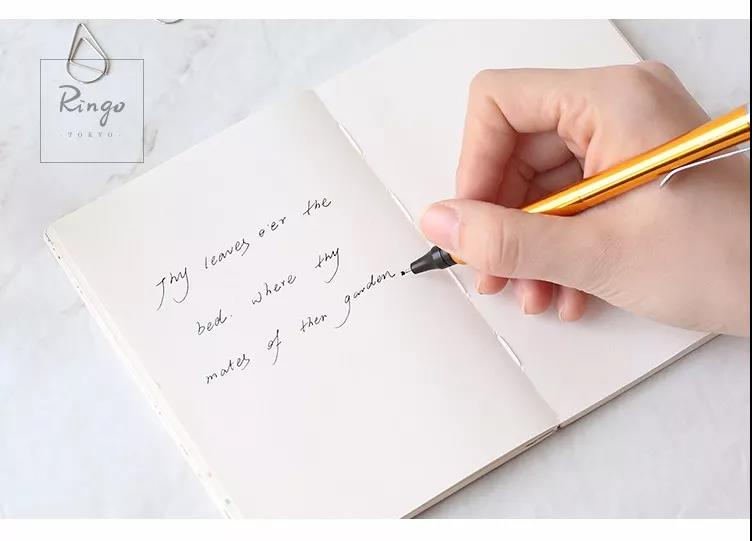 Ringo
·TOKYO·
Thy leaves o'er the
bed. where thy
mates of then garden.